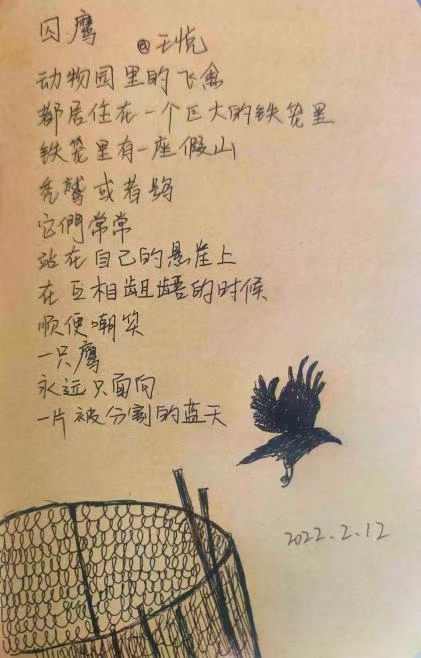 囚鹰
@王悦
动物园里的飞禽
都居住在一个巨大的铁笼里
铁笼里有一座假山
秃鹫或者鸮
它們常常
站在自己的悬崖上
在互相龃龉的时候
顺便嘲笑
一只鹰
永远只面向
一片被分割的蓝天
2022.2.12